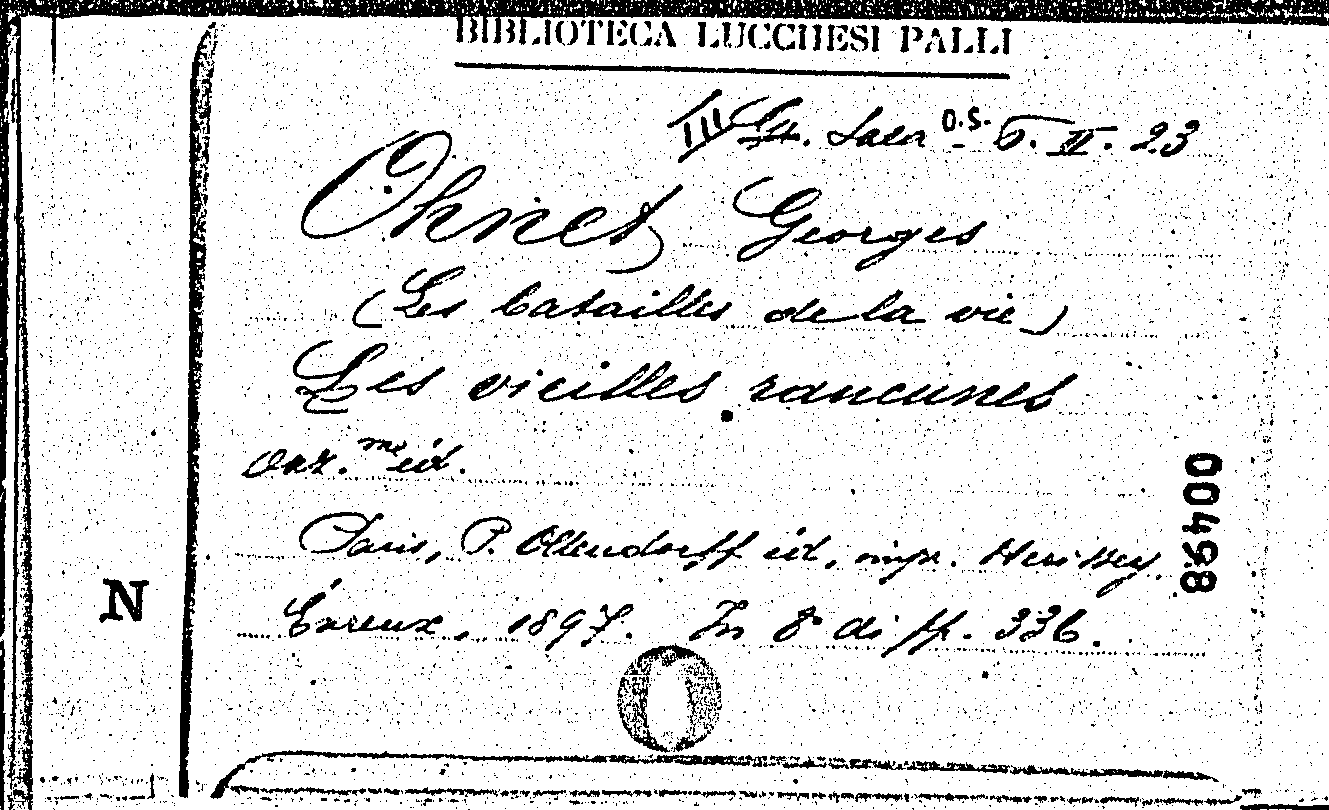 BIBLIOTECA LUCCHESI PALLI
III Sala O.S. 6. II. 23
Ohnet Georges
(Les batailles de la vie)
Les vieilles rancunes
onz.me éd.
Paris, P. Ollendorff éd, impr. Hérissey.
Évreux, 1897. In 8° di pp. 336.
N
86400